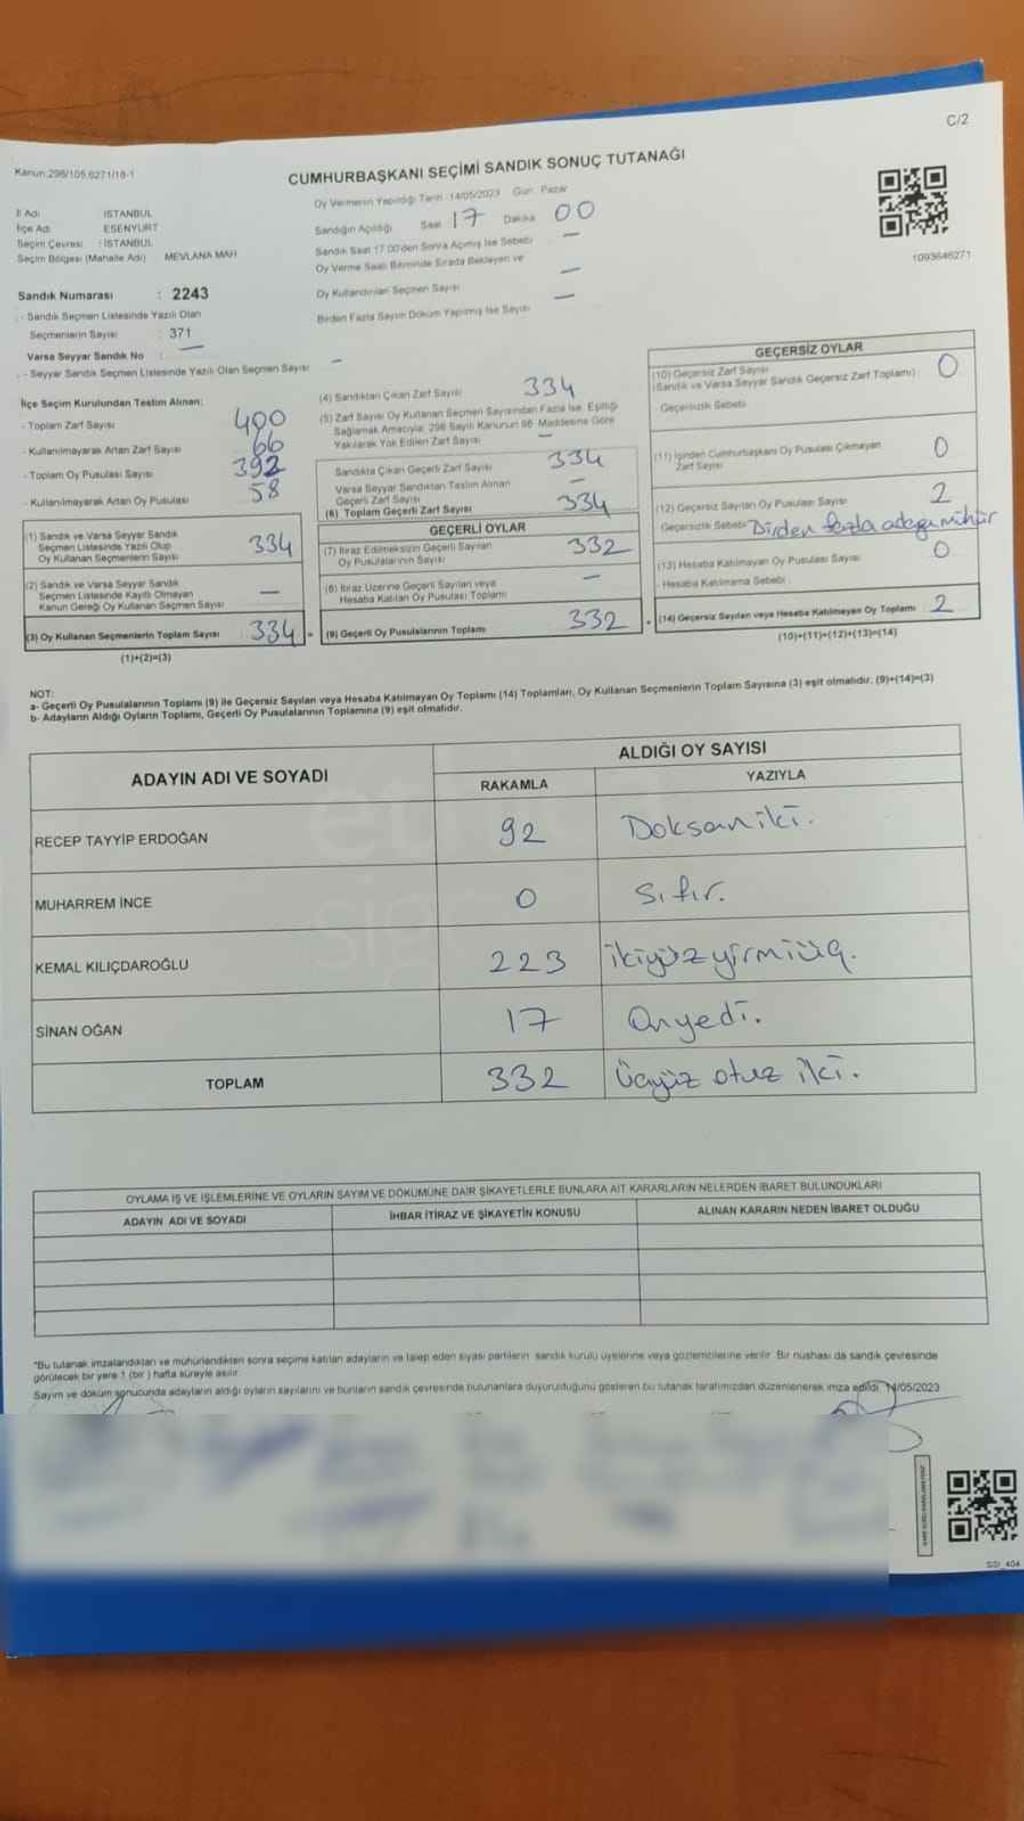 C/2
Kanun:298/105,6271/18-1
CUMHURBAŞKANI SEÇİMİ SANDIK SONUÇ TUTANAĞI
Oy Vermenin Yapıldığı Tarih :14/05/2023 Gün: Pazar
İl Adı : İSTANBUL
İlçe Adı : ESENYURT
Seçim Çevresi : İSTANBUL
Seçim Bölgesi (Mahalle Adı) MEVLANA MAH
Sandığın Açıldığı Saat 17 Dakika 00
Sandık Saat 17.00'den Sonra Açılmış İse Sebebi —
Oy Verme Saati Bitiminde Sırada Bekleyen ve
Oy Kullandırılan Seçmen Sayısı —
Birden Fazla Sayım Döküm Yapılmış İse Sayısı —
1093646271
Sandık Numarası : 2243
- Sandık Seçmen Listesinde Yazılı Olan
Seçmenlerin Sayısı : 371
Varsa Seyyar Sandık No : —
- Seyyar Sandık Seçmen Listesinde Yazılı Olan Seçmen Sayısı —
İlçe Seçim Kurulundan Teslim Alınan:
- Toplam Zarf Sayısı 400
- Kullanılmayarak Artan Zarf Sayısı 66
- Toplam Oy Pusulası Sayısı 392
- Kullanılmayarak Artan Oy Pusulası 58
(1) Sandık ve Varsa Seyyar Sandık
Seçmen Listesinde Yazılı Olup
Oy Kullanan Seçmenlerin Sayısı 334
(2) Sandık ve Varsa Seyyar Sandık
Seçmen Listesinde Kayıtlı Olmayan
Kanun Gereği Oy Kullanan Seçmen Sayısı —
(3) Oy Kullanan Seçmenlerin Toplam Sayısı 334 =
(1)+(2)=(3)
(4) Sandıktan Çıkan Zarf Sayısı 334
(5) Zarf Sayısı Oy Kullanan Seçmen Sayısından Fazla İse, Eşitliği
Sağlamak Amacıyla; 298 Sayılı Kanunun 98. Maddesine Göre
Yakılarak Yok Edilen Zarf Sayısı —
Sandıkta Çıkan Geçerli Zarf Sayısı 334
Varsa Seyyar Sandıktan Teslim Alınan
Geçerli Zarf Sayısı —
(6) Toplam Geçerli Zarf Sayısı 334
GEÇERLİ OYLAR
(7) İtiraz Edilmeksizin Geçerli Sayılan
Oy Pusulalarının Sayısı 332
(8) İtiraz Üzerine Geçerli Sayılan veya
Hesaba Katılan Oy Pusulası Toplamı —
(9) Geçerli Oy Pusulalarının Toplamı 332 +
GEÇERSİZ OYLAR
(10) Geçersiz Zarf Sayısı
(Sandık ve Varsa Seyyar Sandık Geçersiz Zarf Toplamı) : 0
Geçersizlik Sebebi
(11) İçinden Cumhurbaşkanı Oy Pusulası Çıkmayan
Zarf Sayısı 0
(12) Geçersiz Sayılan Oy Pusulası Sayısı 2
Geçersizlik Sebebi Birden fazla adaya mühür
(13) Hesaba Katılmayan Oy Pusulası Sayısı 0
- Hesaba Katılmama Sebebi
(14) Geçersiz Sayılan veya Hesaba Katılmayan Oy Toplamı 2
(10)+(11)+(12)+(13)=(14)
NOT:
a- Geçerli Oy Pusulalarının Toplamı (9) ile Geçersiz Sayılan veya Hesaba Katılmayan Oy Toplamı (14) Toplamları, Oy Kullanan Seçmenlerin Toplam Sayısına (3) eşit olmalıdır. (9)+(14)=(3)
b- Adayların Aldığı Oyların Toplamı, Geçerli Oy Pusulalarının Toplamına (9) eşit olmalıdır.
ADAYIN ADI VE SOYADI
ALDIĞI OY SAYISI
RAKAMLA YAZIYLA
RECEP TAYYİP ERDOĞAN 92 Doksaniki.
MUHARREM İNCE 0 Sıfır.
KEMAL KILIÇDAROĞLU 223 ikiyüzyirmiüç.
SİNAN OĞAN 17 Onyedi.
TOPLAM 332 Üçyüz otuz iki.
OYLAMA İŞ VE İŞLEMLERİNE VE OYLARIN SAYIM VE DÖKÜMÜNE DAİR ŞİKAYETLERLE BUNLARA AİT KARARLARIN NELERDEN İBARET BULUNDUKLARI
ADAYIN ADI VE SOYADI İHBAR İTİRAZ VE ŞİKAYETİN KONUSU ALINAN KARARIN NEDEN İBARET OLDUĞU
"Bu tutanak imzalandıktan ve mühürlendikten sonra seçime katılan adayların ve talep eden siyasi partilerin sandık kurulu üyelerine veya gözlemcilerine verilir. Bir nüshası da sandık çevresinde
görülecek bir yere 1 (bir) hafta süreyle asılır.
Sayım ve döküm sonucunda adayların aldığı oyların sayılarını ve bunların sandık çevresinde bulunanlara duyurulduğunu gösteren bu tutanak tarafımızdan düzenlenerek imza edildi. 14/05/2023